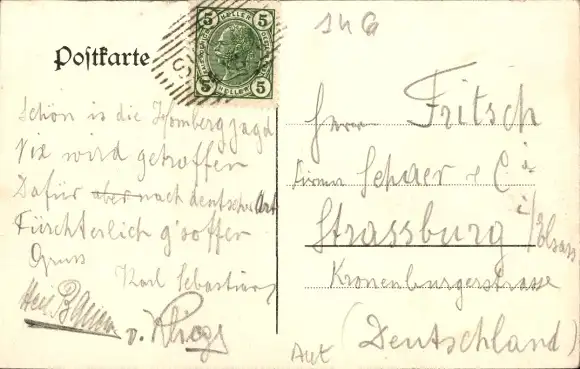 Postkarte
5 HELLER 5
5 HELLER 5
146
Schön is die Hombergjagd
Nix wird getroffen
Dafür aber nach deutscher Art
Fürchterlich g'soffen
Gruss
Karl Sebastian
Heil
v.
Herrn Fritsch
Firma Schaer & Cie
Strassburg i/Elsass
Kronenburgerstrasse
(Deutschland)